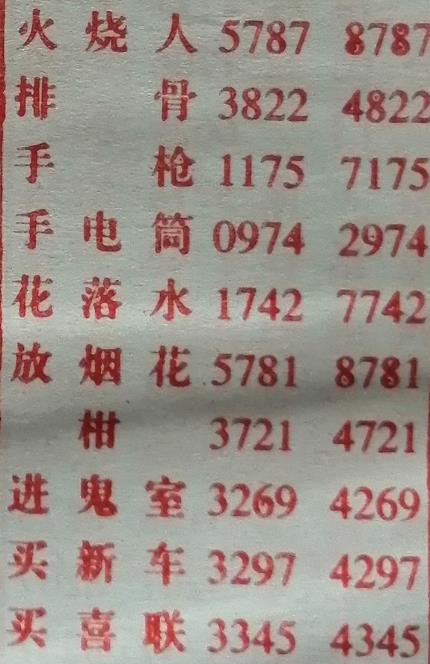 火烧人 5787 8787
排骨 3822 4822
手枪 1175 7175
手电筒 0974 2974
花落水 1742 7742
放烟花 5781 8781
柑 3721 4721
进鬼室 3269 4269
买新车 3297 4297
买喜联 3345 4345